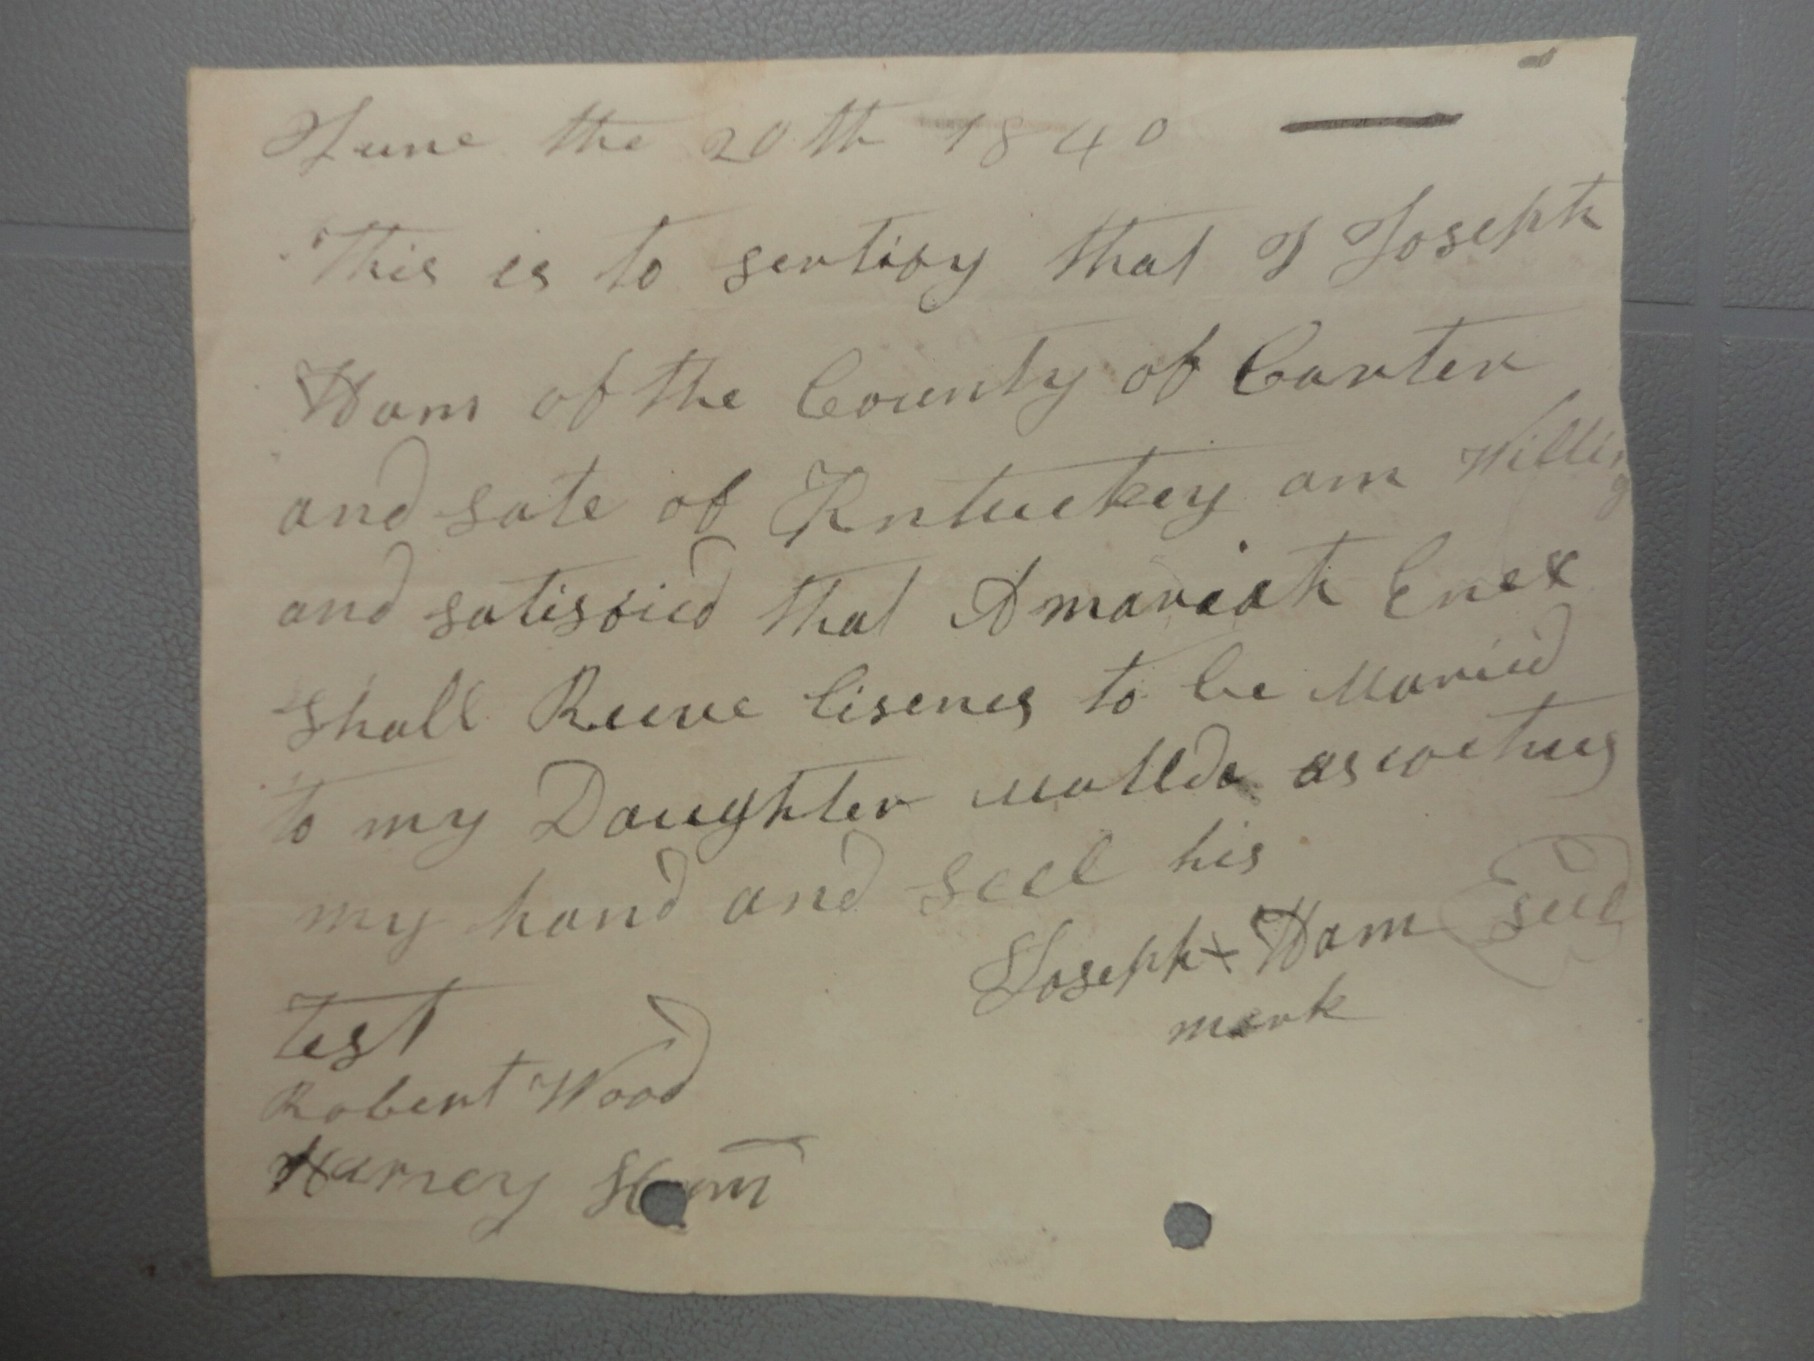 June the 20th 1840
This is to sertify that I Joseph
Ham of the County of Carter
and sate of Kntuckey am Willing
and satisfied that Amariah Enex
shall Reeve lisenes to be Maried
to my Daughter Matilda as wetnes
my hand and seel his
Joseph + Ham seel
mark
Test
Robert Wood
Harney Ham